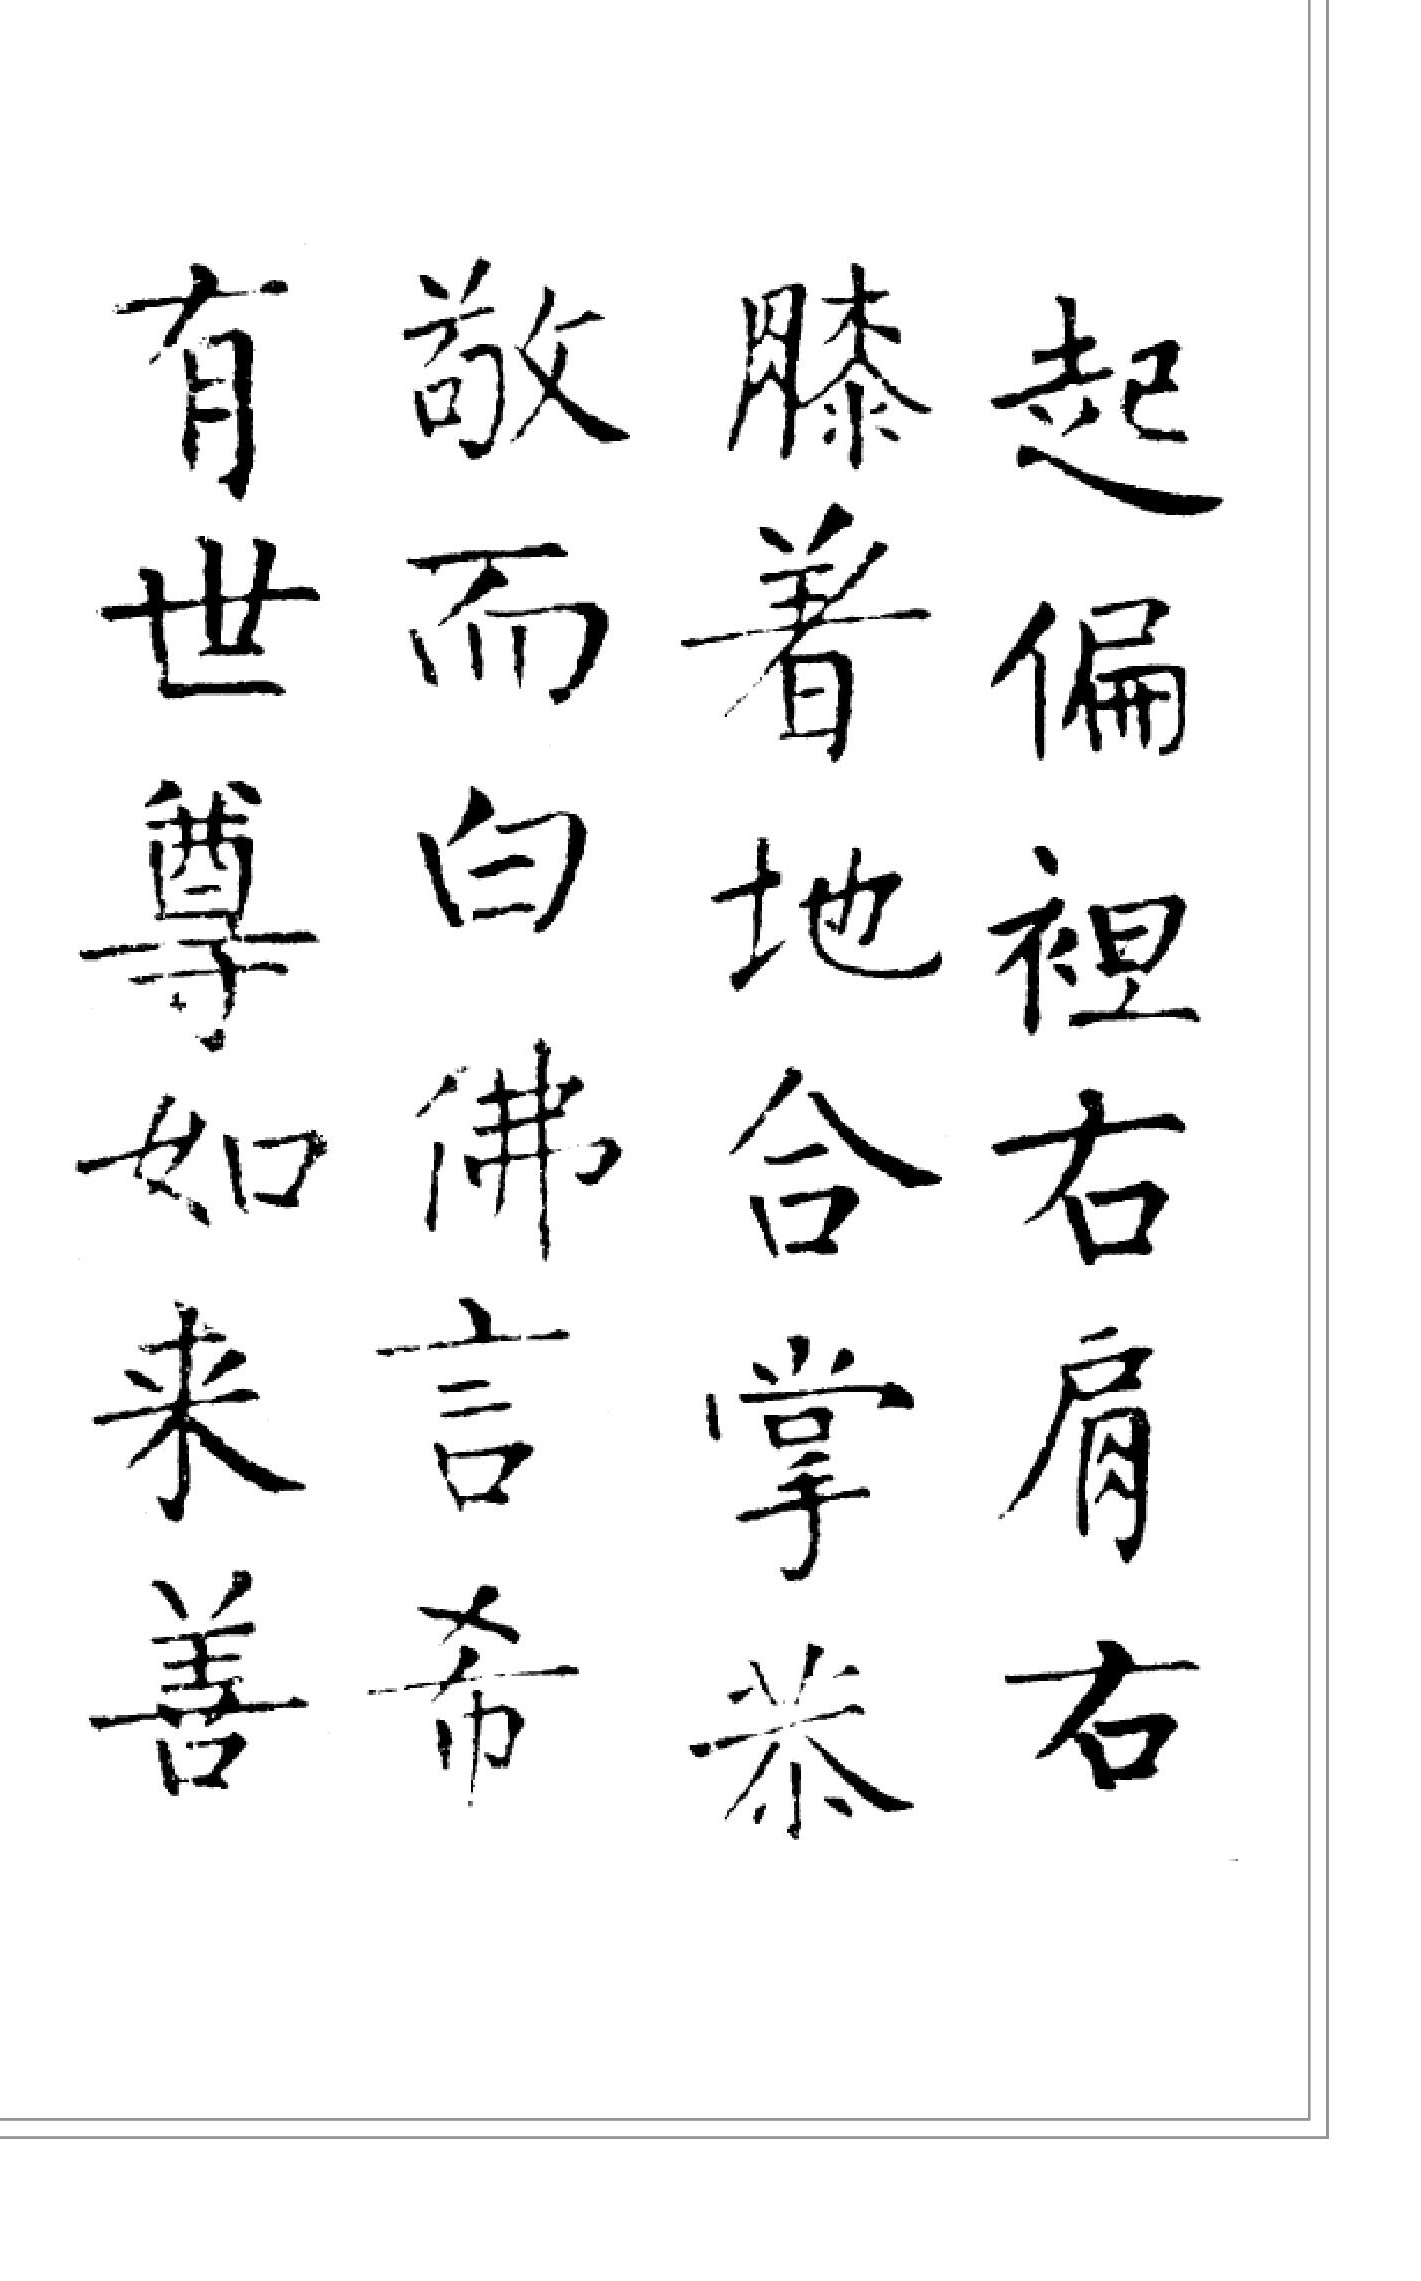 起偏袒右肩右
膝着地合掌恭
敬而白佛言希
有世尊如来善